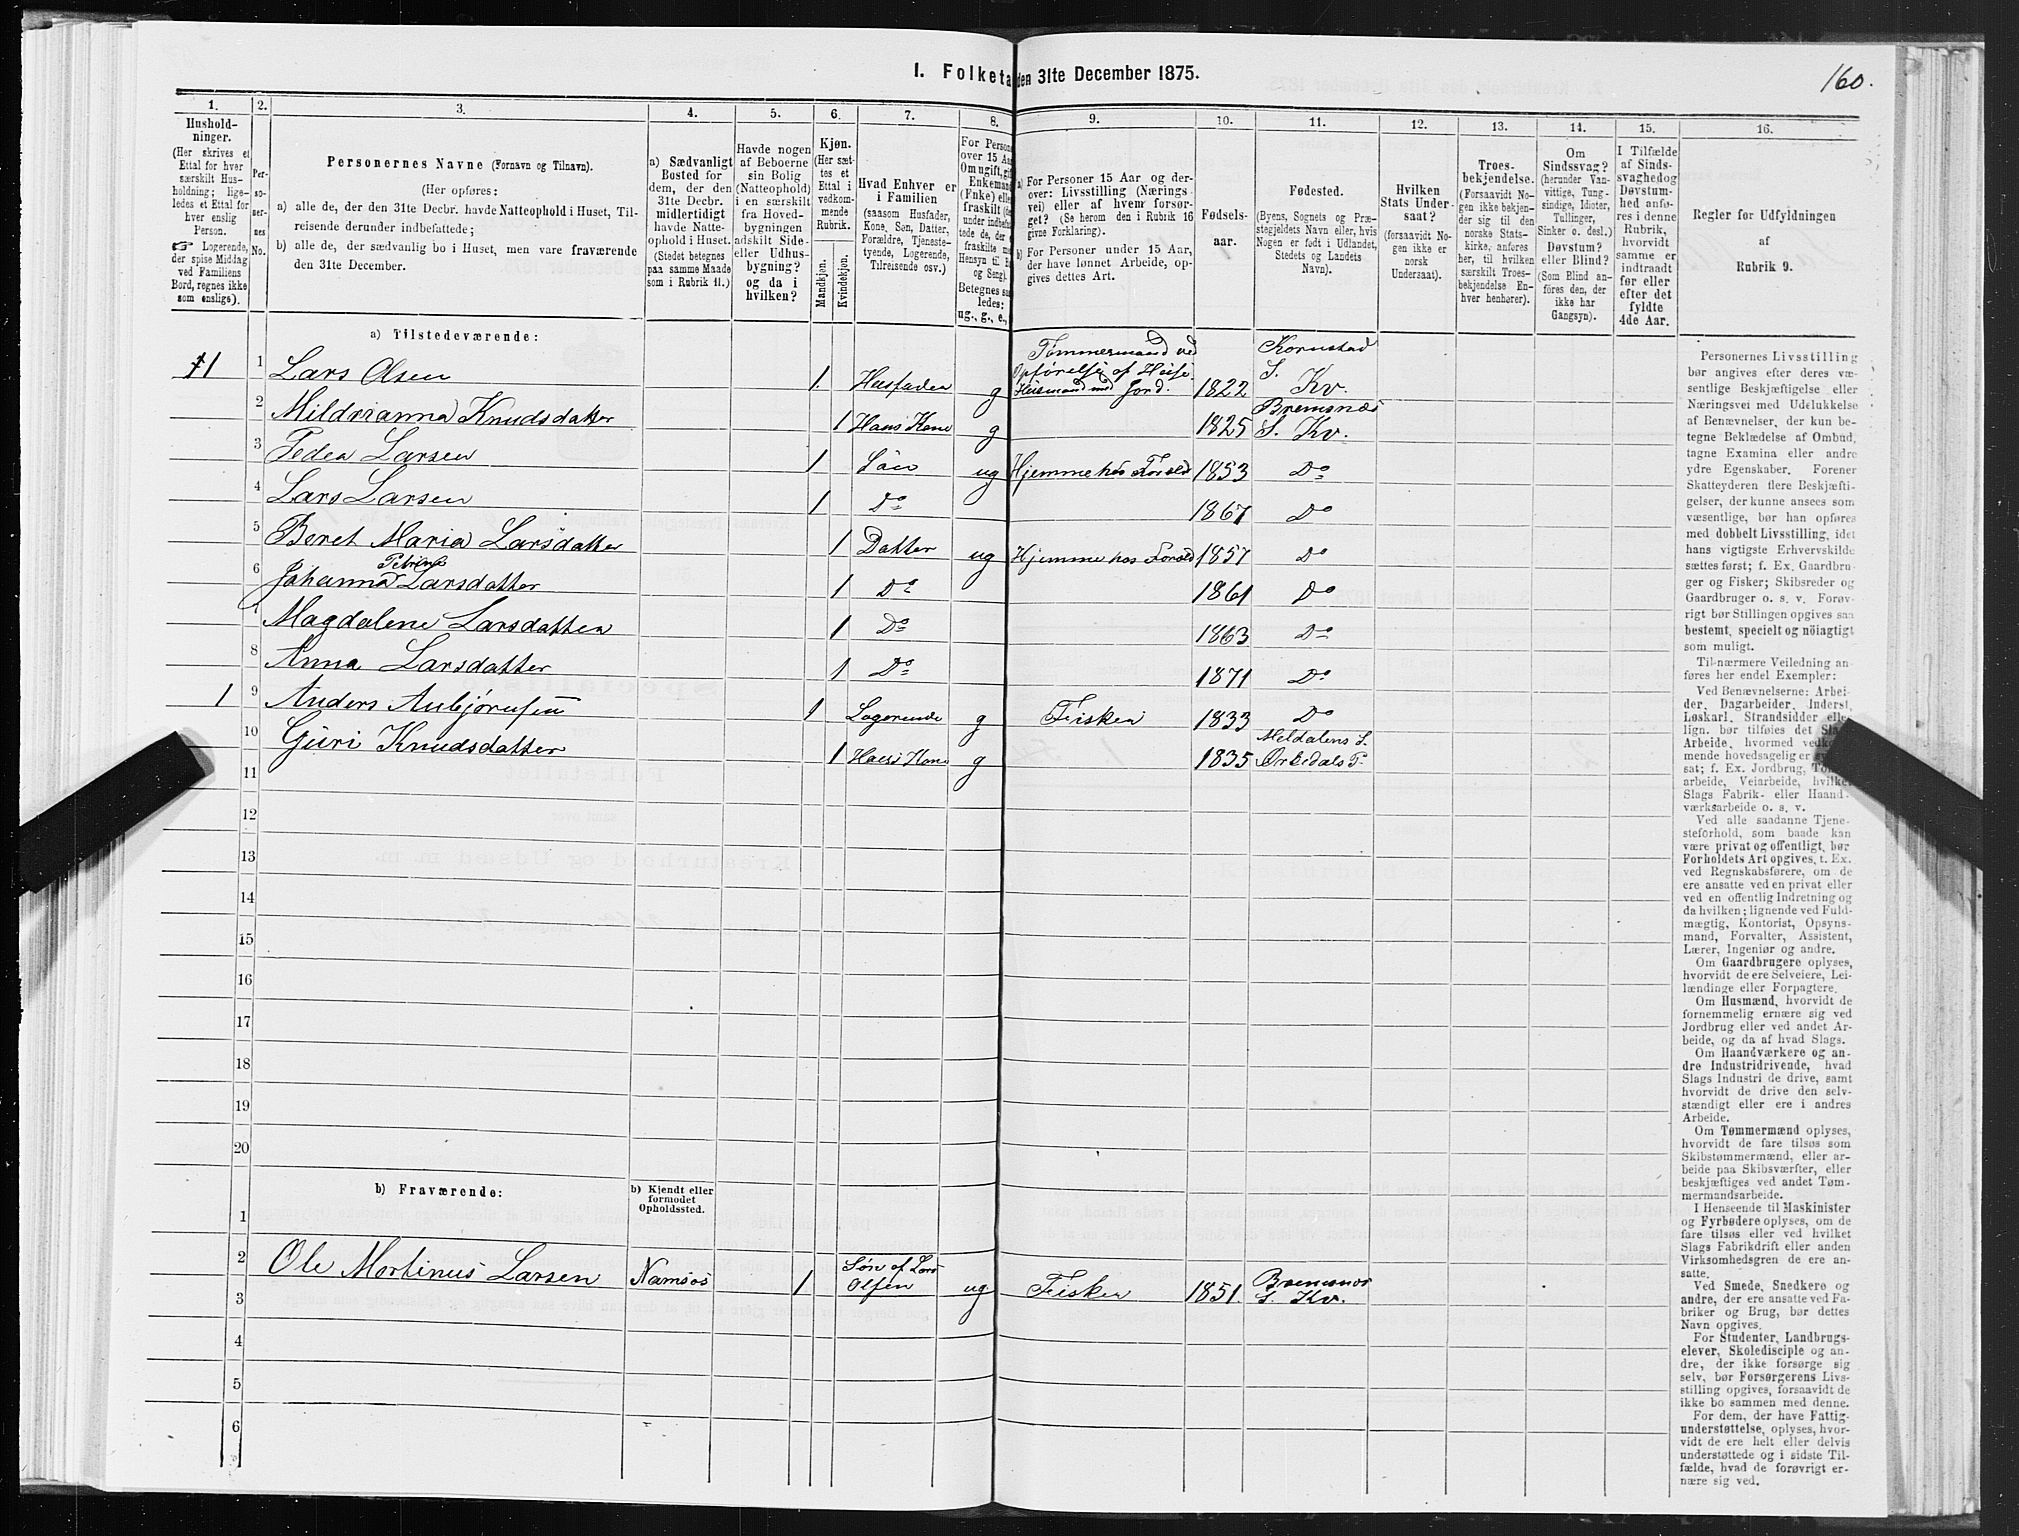 160.
I. Folketa den 31te December 1875.
1. 2. 3. 4. 5. 6. 7. 8. 9. 10. 11. 12. 13. 14. 15. 16.
Hushold-
ninger.
(Her skrives et
Ettal for hver
særskilt Hus-
holdning; lige-
ledes et Ettal for
hver enslig
Person.
Logerende,
der spise Middag
ved Familiens
Bord, regnes ikke
som enslige).
Per-
so-
ner-
nes
No.
Personernes Navne (Fornavn og Tilnavn).
(Her opføres:
a) alle de, der den 31te Decbr. havde Natteophold i Huset, Til-
reisende derunder indbefattede;
b) alle de, der sædvanlig bo i Huset, men vare fraværende
den 31te December.
a) Sædvanligt
Bosted for
dem, der den
31te Decbr.
midlertidigt
havde Natte-
ophold i Huset.
(Stedet betegnes
paa samme Maade
som i Rubrik 11.)
Havde nogen
af Beboerne
sin Bolig
(Natteophold)
i en særskilt
fra Hoved-
bygningen
adskilt Side-
eller Udhus-
bygning?
og da i
hvilken?
Kjøn.
(Her sæt-
tes et
Ettal i
vedkom-
mende
Rubrik.
Mandkjøn.
Kvindekjøn.
Hvad Enhver er
i Familien
(saasom Husfader,
Kone, Søn, Datter,
Forældre, Tjeneste-
tyende, Logerende,
Tilreisende osv.)
For Person
over 15 Aa
Om ugift, gif
Enkemand
(Enke) elle
fraskilt
under indbefat-
tede de, der
fraskilte m
Hensyn til
og Seng).
Betegnes saa
ledes:
ug., g., e.,
a) For Personer 15 Aar og der-
over: Livsstilling (Nærings-
vei) eller af hvem forsør-
get? (Se herom den i Rubrik 16
givne Forklaring).
b) For Personer under 15 Aar,
der have lønnet Arbeide, op-
gives dettes Art.
Fødsels-
aar.
Fødested.
(Byens, Sognets og Præ-
stegjeldets Navn eller, hvis
Nogen er født i Udlandet,
Stedets og Landets
Navn).
Hvilken
Stats Under-
saat?
(forsaavidt No-
gen ikke er
norsk
Undersaat).
Troes-
bekjendelse.
(Forsaavidt No-
gen ikke bekjen-
der sig til den
norske Stats-
kirke, anføres
her, til hvilken
særskilt Troes-
bekjendelse En-
hver henhører).
Om
Sindssvag?
(herunder Van-
vittige, Tung-
sindige, Idioter,
Tullinger,
Sinker o. desl.)
Døvstum?
eller Blind?
(Som Blind an-
føres den, der
ikke har
Gangsyn).
I Tilfælde
af Sinds-
svaghed og
Døvstum-
hed anfø-
res i denne
Rubrik,
hvorvidt
samme er
indtraadt
før eller
efter det
fyldte
4de Aar.
Regler for Udfyldningen
af
Rubrik 9.
a) Tilstedeværende:
1 Lars Olsen 1. Husfader g Tømmermand ved Opførelse af Huse. Huusmand med Jord. 1822 Kornstad S. Kv.
2 Mildrianna Knudsdatter 1 Hans Kone g 1825 Bremsnæs S. Kv.
3 Peder Larsen 1 Søn ug Hjemme hos Foræld 1853 Do
4 Lars Larsen 1 Do 1867 Do
5 Beret Maria Larsdatter 1 Datter ug Hjemme hos Foræld 1857 Do
6 Johanna Petrine Larsdatter 1 Do 1861 Do
7 Magdalene Larsdatter 1 Do 1863 Do
8 Anna Larsdatter 1 Do 1871 Do
1 9 Anders Anbjørnsen 1 Logerende g Fisker 1833 Do
10 Guri Knudsdatter 1 Hans Kone g 1835 Meldalens S. Orkedals P.
11
12
13
14
15
16
17
18
19
20
b) Fraværende:
b) Kjendt eller
formodet
Opholdssted.
1
2 Ole Martinus Larsen Namsos 1 Søn af Lars Olsen ug Fisker 1851. Bremsnes S. Kv.
3
4
5
6
Personernes Livsstilling
bør angives efter deres væ-
sentlige Beskjæftigelse eller
Næringsvei med Udelukkelse
af Benævnelser, der kun be-
tegne Beklædelse af Ombud,
tagne Examina eller andre
ydre Egenskaber. Forener
Skatteyderen flere Beskjæfti-
gelser, der kunne ansees som
væsentlige, bør han opføres
med dobbelt Livsstilling, idet
hans vigtigste Erhvervskilde
sættes først; f. Ex. Gaardbru-
ger og Fisker; Skibsreder og
Gaardbruger o. s. v. Forøv-
rigt bør Stillingen opgives saa
bestemt, specielt og nöiagtigt
som muligt.
Til nærmere Veiledning an-
føres her endel Exempler:
Ved Benævnelserne: Arbei-
der, Dagarbeider, Inderst,
Løskarl, Strandsidder eller
lign. bør tilføies det Slags
Arbeide, hvormed vedkom-
mende hovedsagelig er syssel-
sat; f. Ex. Jordbrug, Tom-
arbeide, Veiarbeide, hvilket
Slags Fabrik- eller Haand-
værksarbeide o. s. v.
Ved alle saadanne Tjene-
steforhold, som baade kan
være privat og offentligt, bør
Forholdets Art opgives, t. Ex.
ved Regnskabsførere, om de
ere ansatte ved en privat eller
ved en offentlig Indretning og
da hvilken; lignende ved Fuld-
mægtig, Kontorist, Opsyns-
mand, Forvalter, Assistent,
Lærer, Ingeniør og andre.
Om Gaardbrugere oplyses,
hvorvidt de ere Selveiere, Lei-
lændinge eller Forpagtere.
Om Husmænd, hvorvidt de
fornemmelig ernære sig ved
Jordbrug eller ved andet Ar-
beide, og da af hvad Slags.
Om Haandværkere og an-
dre Industridrivende, hvad
Slags Industri de drive, samt
hvorvidt de drive den selv-
stændigt eller ere i andres
Arbeide.
Om Tømmermænd oplyses,
hvorvidt de fare tilsøs som
Skibstømmermænd, eller ar-
beide paa Skibsværfter, eller
beskjæftiges ved andet Tøm-
mermandsarbeide.
I Henseende til Maskinister
og Fyrbødere oplyses, om de
fare tilsøs eller ved hvilket
Slags Fabrikdrift eller anden
Virksomhedsgren de ere an-
satte.
Ved Smede, Snedkere og
andre, der ere ansatte ved Fa-
briker og Brug, bør dettes
Navn opgives.
For Studenter, Landbrugs-
elever, Skoledisciple og an-
dre, der ikke forsørge sig
selv, bør Forsørgerens Livs-
stilling opgives, forsaavidt de
ikke bo sammen med denne.
For dem, der have Fattig-
understøttelse, oplyses, hvor-
vidt de ere helt eller delvis
understøttede og i sidste Til-
fælde, hvad de forøvrigt er-
nære sig ved.